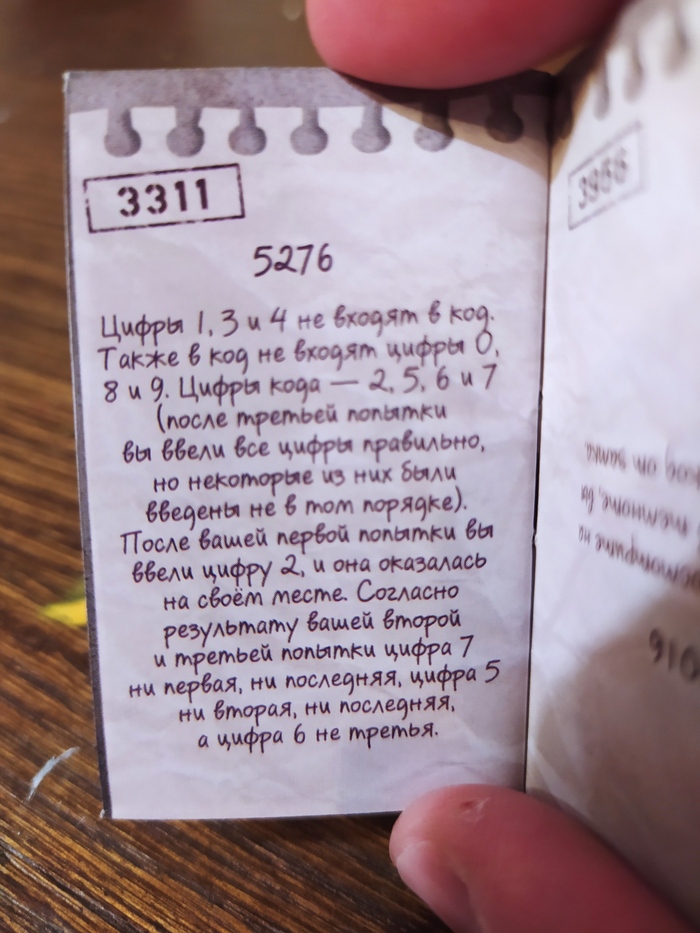 3311
5276
Цифры 1, 3 и 4 не входят в код.
Также в код не входят цифры 0,
8 и 9. Цифры кода — 2, 5, 6 и 7
(после третьей попытки
вы ввели все цифры правильно,
но некоторые из них были
введены не в том порядке).
После вашей первой попытки вы
ввели цифру 2, и она оказалась
на своём месте. Согласно
результату вашей второй
и третьей попытки цифра 7
ни первая, ни последняя, цифра 5
ни вторая, ни последняя,
а цифра 6 не третья.